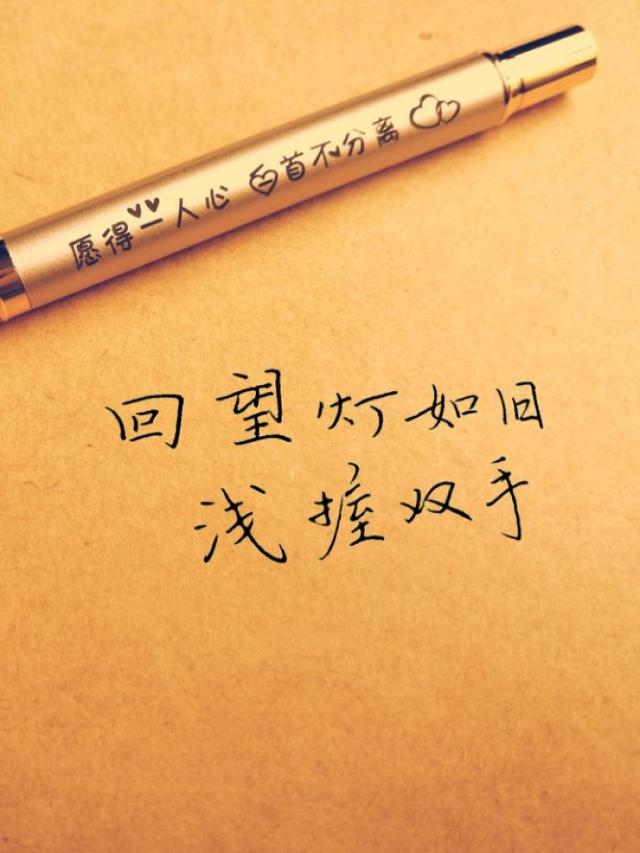 愿得一人心 白首不分离
回望灯如旧
浅握双手